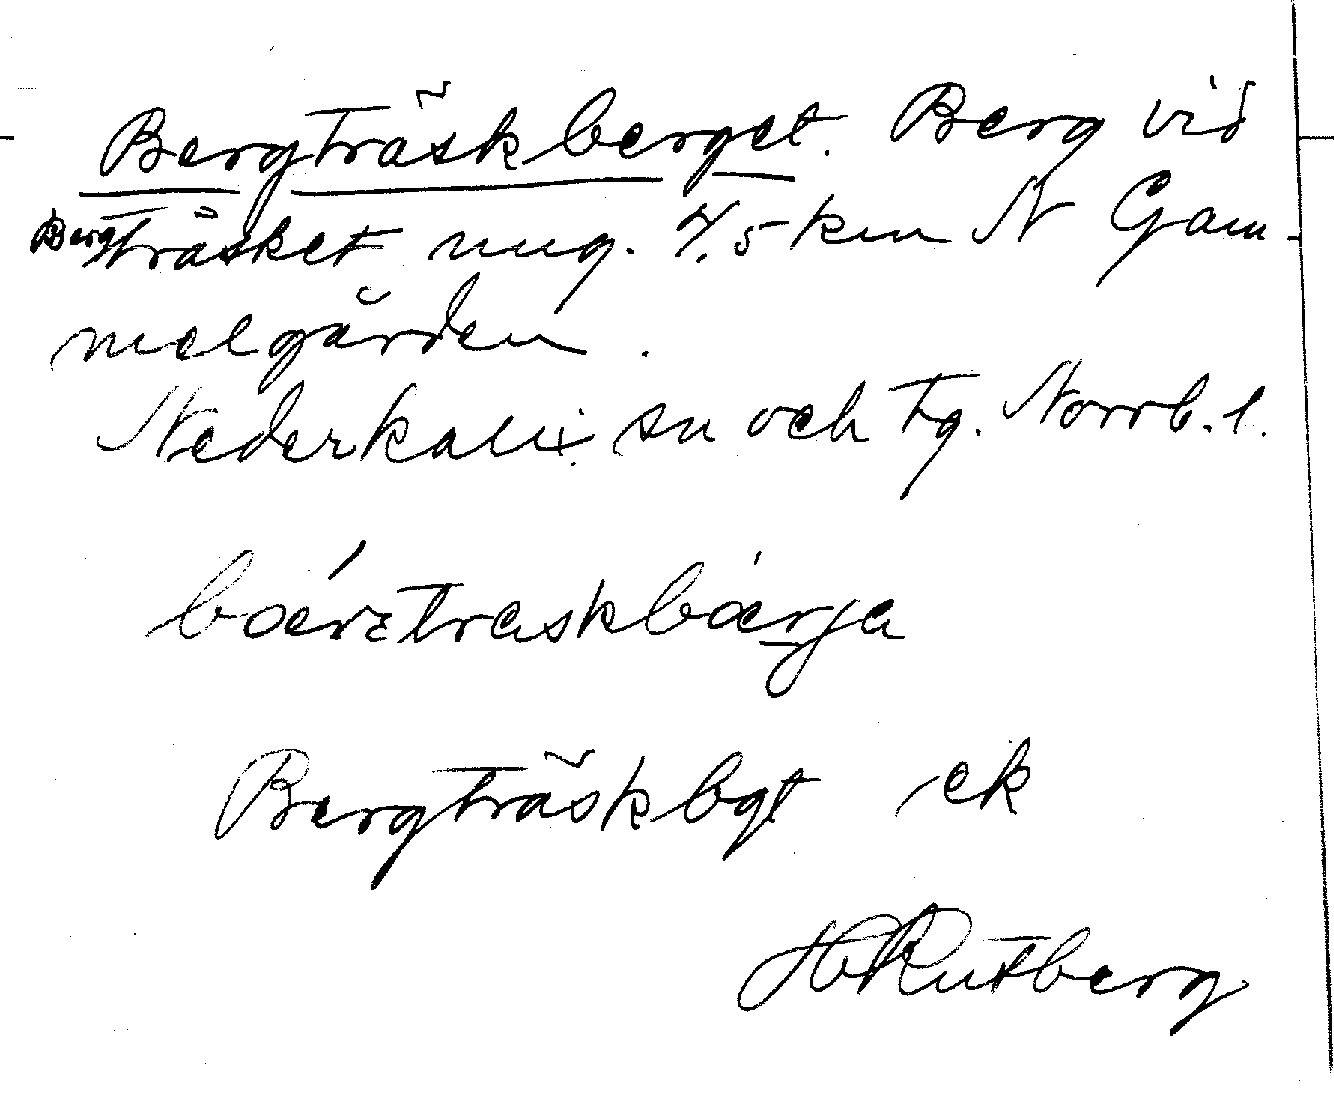 Bergträskberget. Berg vid
Bergträsket ung. 7,5 km N Gam
melgården.
Nederkalix sn och tg. Norrb. l.
Bergträskbgt ek
H Rutberg